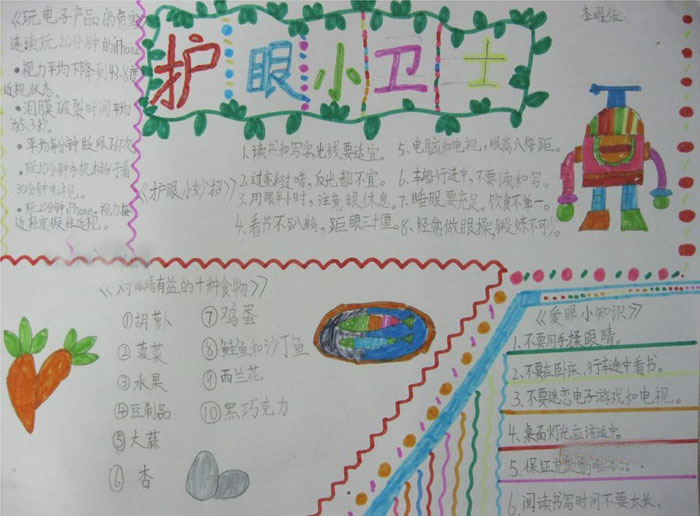 护眼小卫士
《玩电子产品的危害
连续玩20分钟的iPhone
•视力平均下降到43.8度
近视状态。
•泪膜破裂时间平均
为3.3秒。
•平均每分钟眨眼
•玩10分钟手机相当于看
30分钟电视。
•玩20分钟iPhone,视力接
近轻度假性近视。
《护眼小妙招》
1.读书和写字光线要适宜。
2.过亮过暗,反光都不宜。
3.用眼半小时,注意眼休息。
4.看书不趴躺,距眼三十厘。
5.电脑和电视,眼离八倍距。
6.车船行进中,不要读和写。
7.睡眠要充足,饮食不单一。
8.经常做眼操,锻炼不可少。
《对眼睛有益的十种食物》
①胡萝卜
②菠菜
③水果
④豆制品
⑤大蒜
⑥杏
⑦鸡蛋
⑧鲑鱼和沙丁鱼
⑨西兰花
⑩黑巧克力
《爱眼小知识》
1.不要用手揉眼睛。
2.不要在卧床、行车途中看书。
3.不要迷恋电子游戏和电视。
4.桌面灯光应该适中。
5.保证充足的
6.阅读书写时间不要太长。